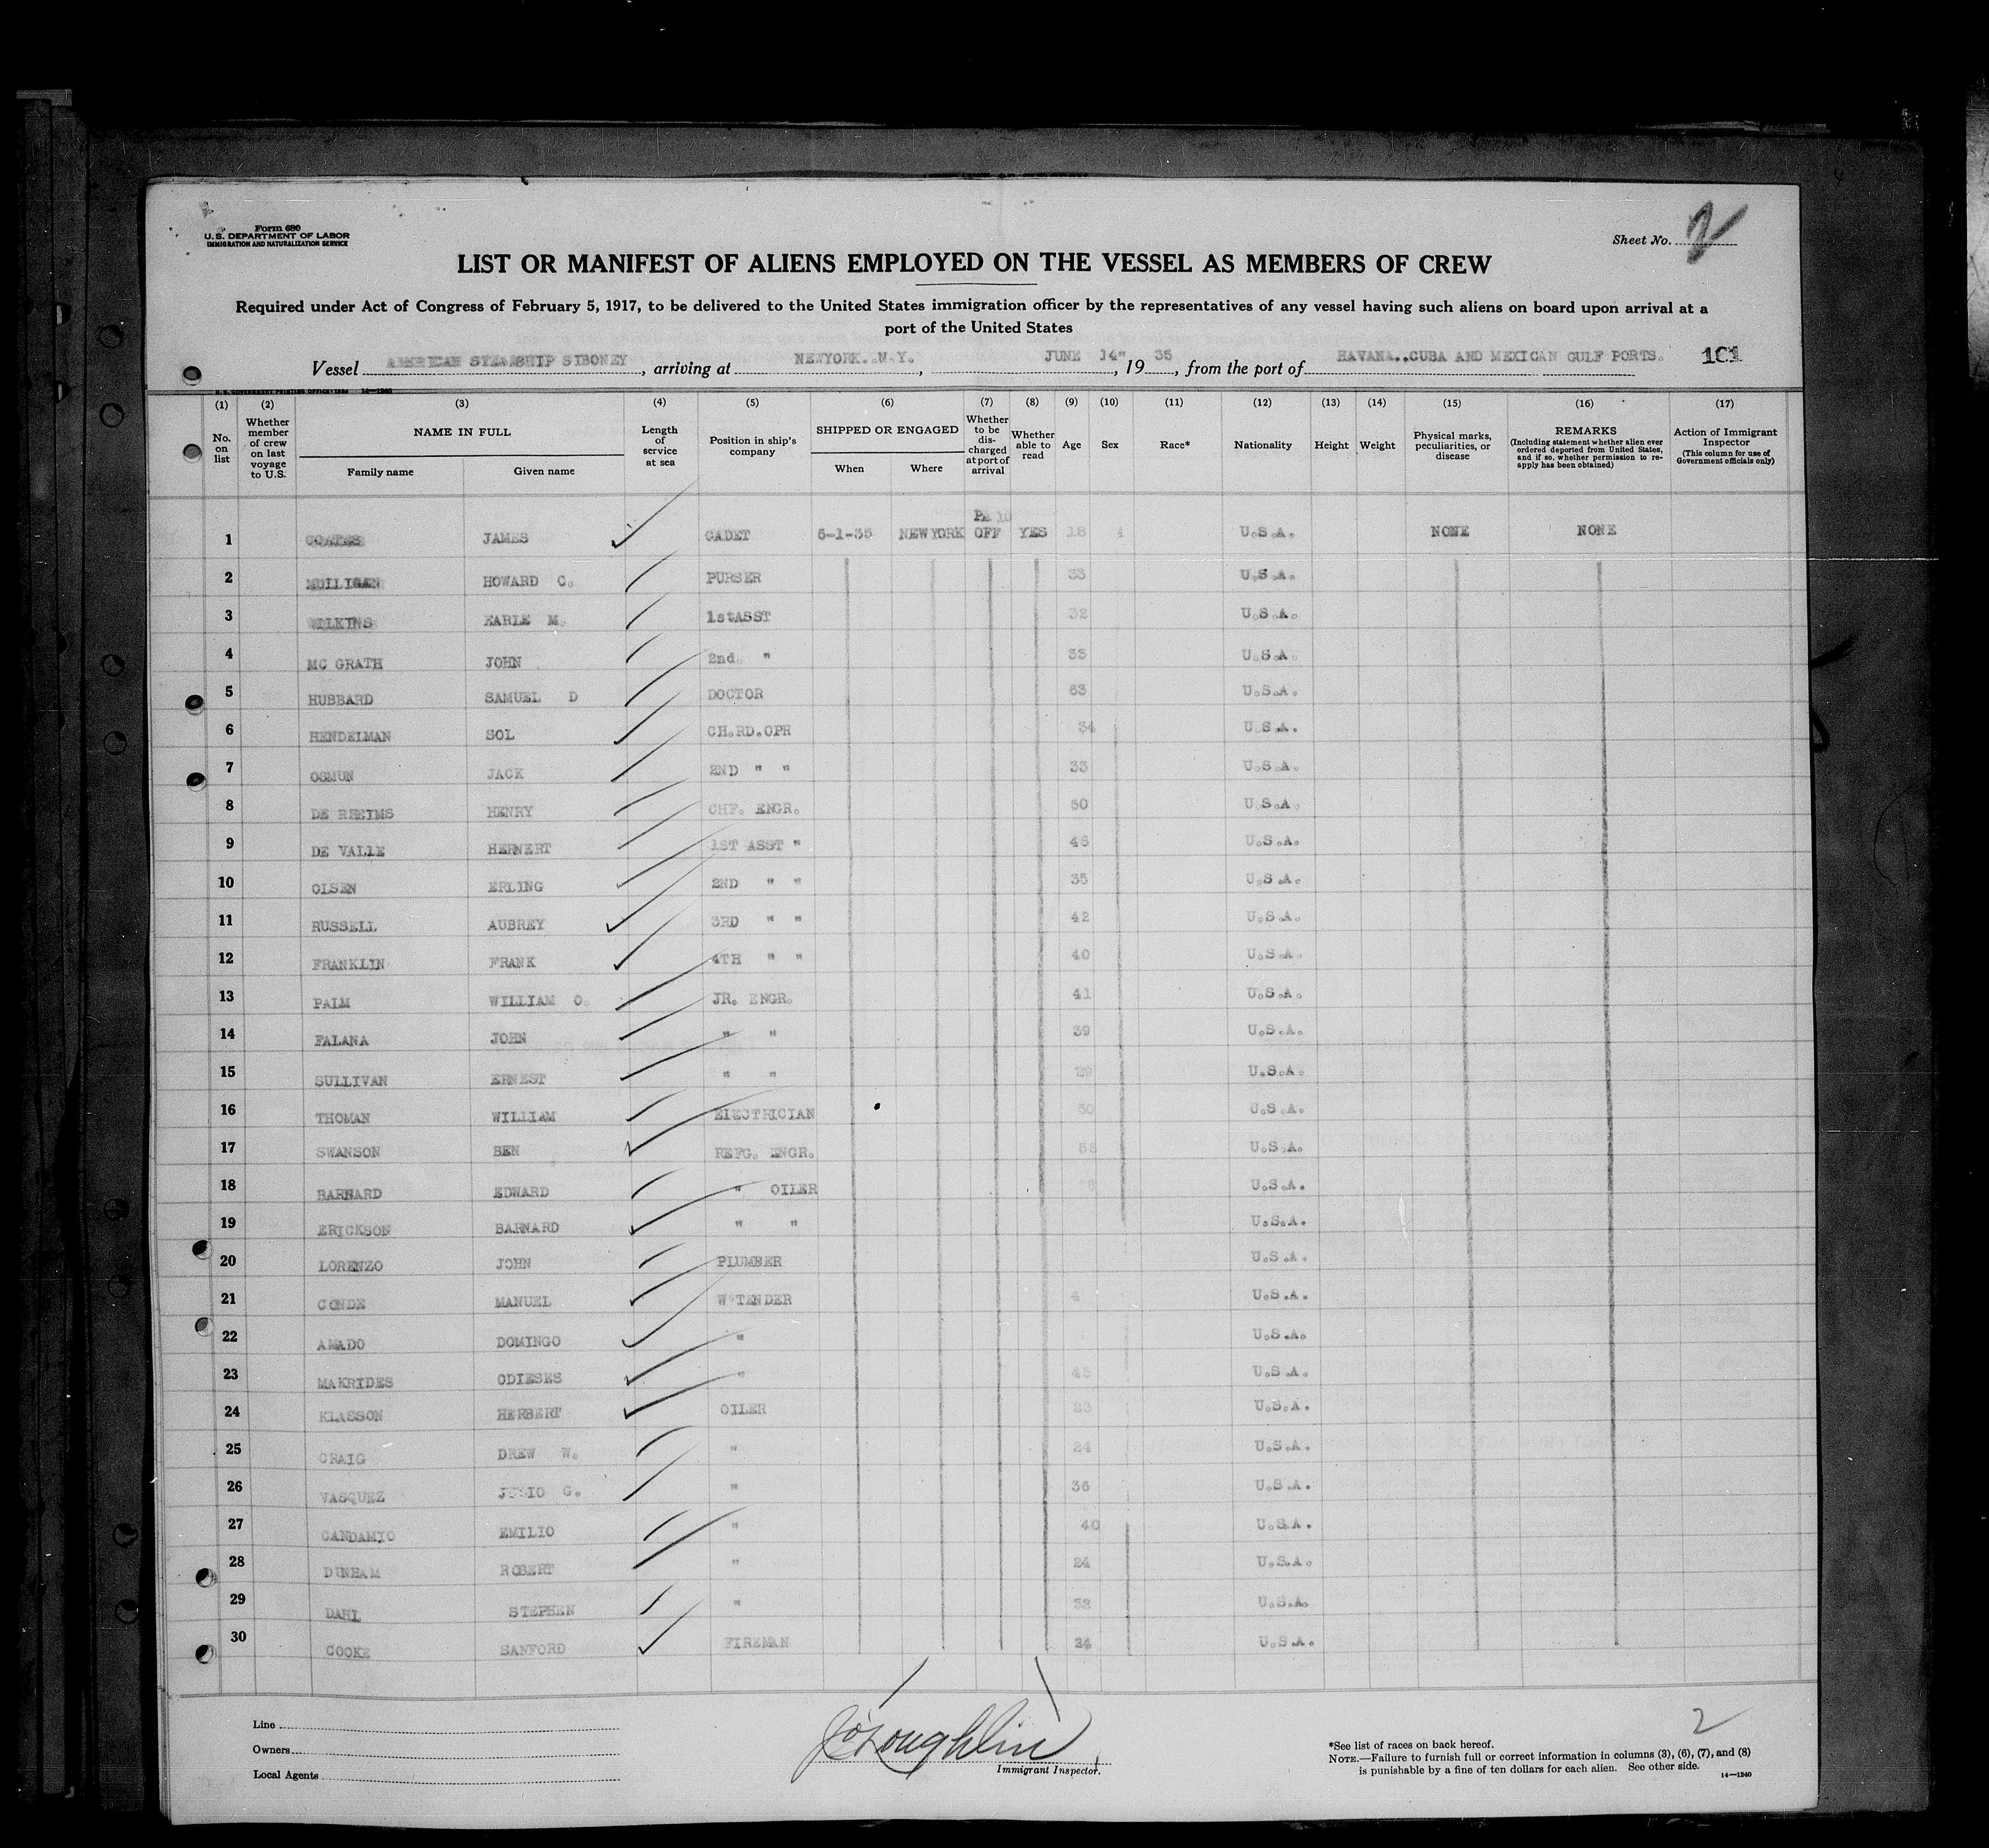 Form 680
U. S. DEPARTMENT OF LABOR
IMMIGRATION AND NATURALIZATION SERVICE
Sheet No. 2
LIST OR MANIFEST OF ALIENS EMPLOYED ON THE VESSEL AS MEMBERS OF CREW
Required under Act of Congress of February 5, 1917, to be delivered to the United States immigration officer by the representatives of any vessel having such aliens on board upon arrival at a
port of the United States
Vessel AMERICAN STEAMSHIP SIBONEY, arriving at NEWYORK. N.Y., JUNE 14" , 19 35, from the port of HAVANA..CUBA AND MEXICAN GULF PORTS. 101
U. S. GOVERNMENT PRINTING OFFICE: 1934 14—1240
(1) (2) (3) (4) (5) (6) (7) (8) (9) (10) (11) (12) (13) (14) (15) (16) (17)
No. on list
Whether member of crew on last voyage to U.S.
NAME IN FULL
Family name Given name
Length of service at sea
Position in ship's company
SHIPPED OR ENGAGED
When Where
Whether to be discharged at port of arrival
Whether able to read
Age Sex Race* Nationality Height Weight
Physical marks, peculiarities, or disease
REMARKS
(Including statement whether alien ever ordered deported from United States, and if so, whether permission to reapply has been obtained)
Action of Immigrant Inspector
(This column for use of Government officials only)
1 COATES JAMES CADET 6-1-35 NEWYORK PAID OFF YES 18 U.S.A. NONE NONE
2 MULLIGAN HOWARD C. PURSER 33 U.S.A.
3 WILKINS EARLE M. 1stASST 32 U.S.A.
4 MC GRATH JOHN 2nd. " 33 U.S.A.
5 HUBBARD SAMUEL D DOCTOR 63 U.S.A.
6 HENDELMAN SOL CH.RD.OPR 34 U.S.A.
7 OSMUN JACK 2ND " " 33 U.S.A.
8 DE RHEIMS HENRY CHF. ENGR. 50 U.S.A.
9 DE VALLE HERNERT 1ST ASST " 46 U.S.A.
10 OLSEN ERLING 2ND " " 35 U.S.A.
11 RUSSELL AUBREY 3RD " " 42 U.S.A.
12 FRANKLIN FRANK 4TH " " 40 U.S.A.
13 PALM WILLIAM O. JR. ENGR. 41 U.S.A.
14 FALANA JOHN " " 39 U.S.A.
15 SULLIVAN ERNEST " " 29 U.S.A.
16 THOMAN WILLIAM ELECTRICIAN 50 U.S.A.
17 SWANSON BEN REFG. ENGR. U.S.A.
18 BARNARD EDWARD " OILER U.S.A.
19 ERICKSON BARNARD " " U.S.A.
20 LORENZO JOHN PLUMBER U.S.A.
21 CONDE MANUEL W"TENDER 4 U.S.A.
22 AMADO DOMINGO " U.S.A.
23 MAKRIDES ODIESES " 45 U.S.A.
24 KLASSON HERBERT OILER 23 U.S.A.
25 CRAIG DREW W. " 24 U.S.A.
26 VASQUEZ G. " 36 U.S.A.
27 CANDAMIO EMILIO " 40 U.S.A.
28 DUNHAM ROBERT " 24 U.S.A.
29 DAHL STEPHEN " 32 U.S.A.
30 COOKE SANFORD FIREMAN 24 U.S.A.
Line
Owners
Local Agents
J O'Loughlin
Immigrant Inspector.
2
*See list of races on back hereof.
NOTE.—Failure to furnish full or correct information in columns (3), (6), (7), and (8)
is punishable by a fine of ten dollars for each alien. See other side.
14—1240